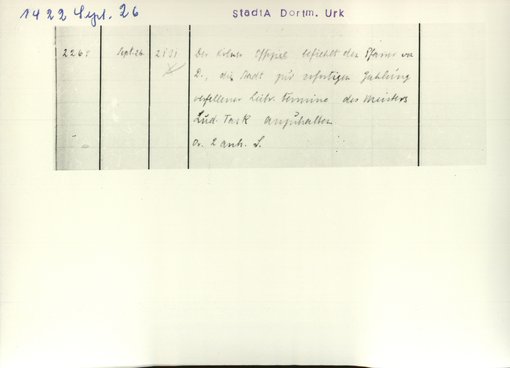 1422 Sept. 26
StadtA Dortm. Urk
2265 Sept. 26 2831
Der Kölner Offizial befiehlt den Pfarrer von
D., die Stadt zur sofortigen Zahlung
verfallener Termine des Meisters
Lud. Tark anzuhalten
Or. 2 anh. S.